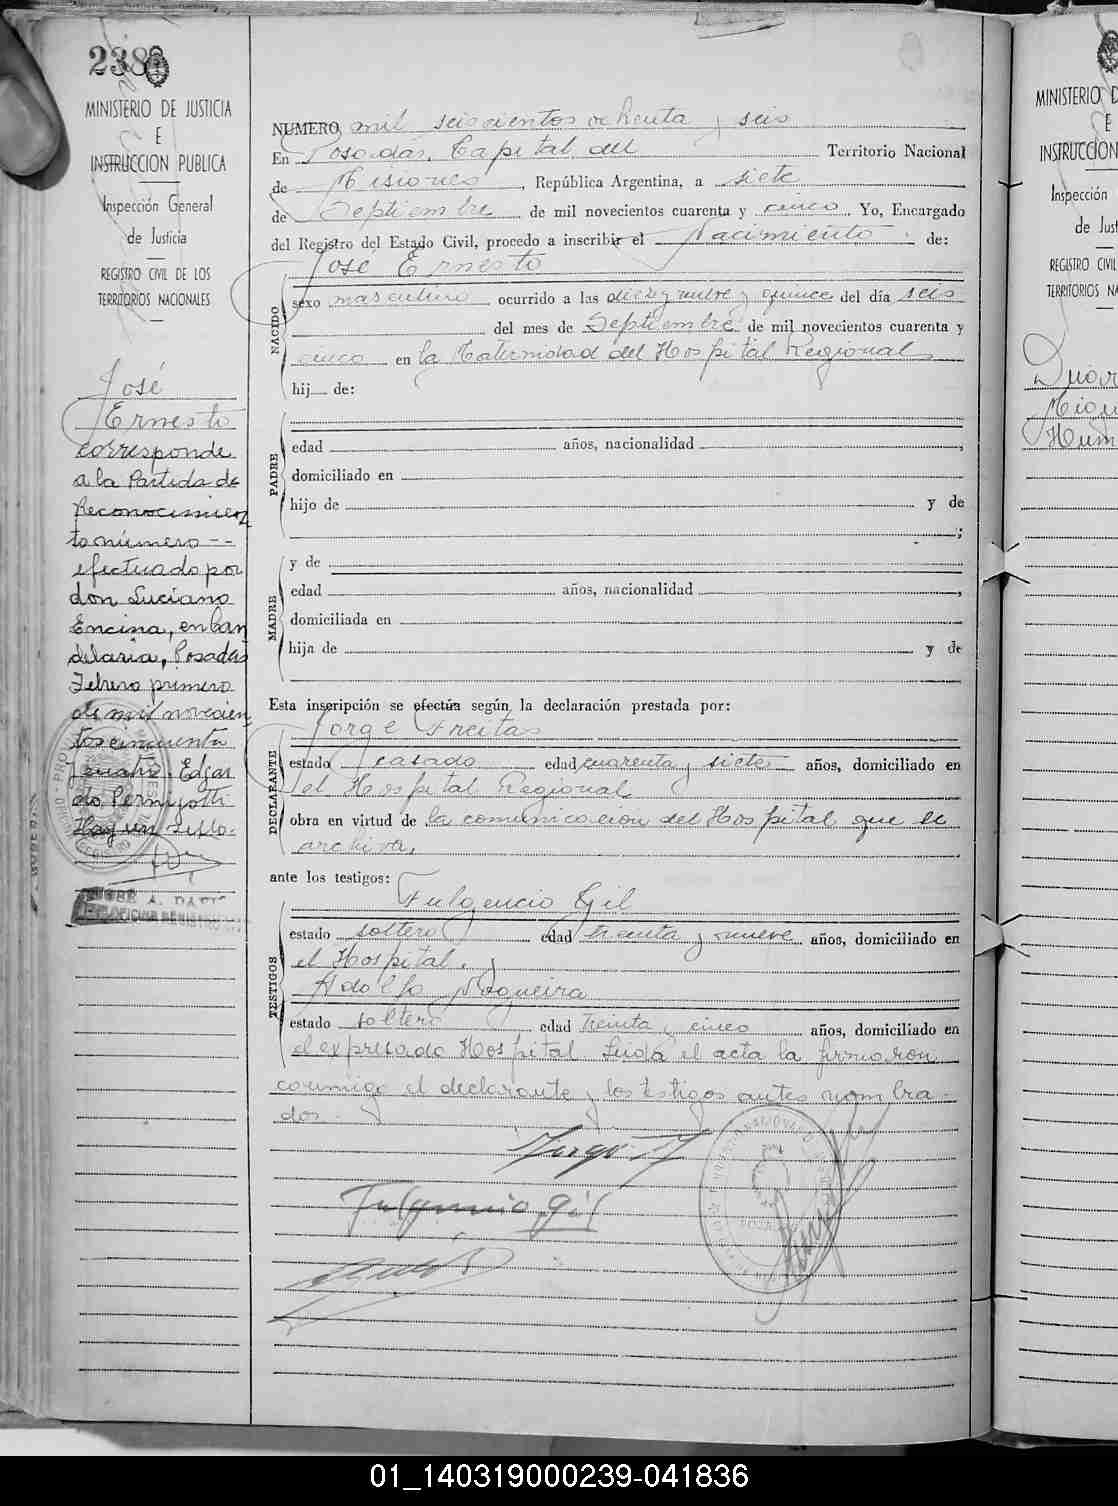 238
MINISTERIO DE JUSTICIA
E
INSTRUCCION PUBLICA
Inspección General
de Justicia
REGISTRO CIVIL DE LOS
TERRITORIOS NACIONALES
José
Ernesto
corresponde
a la Partida de
Reconocimien
to número --
efectuado por
don Luciano
Encina, en Can
delaria, Posadas
Febrero primero
de mil novecien
tos cincuenta
y cuatro. Edgar
do Pernigotti
Hay un sello.
NUMERO mil seiscientos ochenta y seis
En Posadas, Capital del Territorio Nacional
de Misiones, República Argentina, a siete
de Septiembre de mil novecientos cuarenta y cinco Yo, Encargado
del Registro del Estado Civil, procedo a inscribir el Nacimiento de:
NACIDO
José Ernesto
sexo masculino ocurrido a las diez y nueve y quince del día seis
del mes de Septiembre de mil novecientos cuarenta y
cinco en la Maternidad del Hospital Regional
hij de:
PADRE
edad años, nacionalidad ,
domiciliado en
hijo de y de
;
MADRE
y de
edad años, nacionalidad ,
domiciliada en
hija de y de
Esta inscripción se efectúa según la declaración prestada por:
DECLARANTE
Jorge Freitas
estado casado edad cuarenta y siete años, domiciliado en
el Hospital Regional
obra en virtud de la comunicación del Hospital que se
archiva.
ante los testigos:
TESTIGOS
Fulgencio Gil
estado soltero edad treinta y nueve años, domiciliado en
el Hospital. y
Adolfo Nogueira
estado soltero edad treinta y cinco años, domiciliado en
el expresado Hospital Leída el acta la firmaron
conmigo el declarante y los testigos antes nombra-
dos.
Fulgencio Gil
MINISTERIO D
E
INSTRUCCION
Inspección
de Just
REGISTRO CIVIL
TERRITORIOS NA
Duar
Migu
Hum
01_140319000239-041836